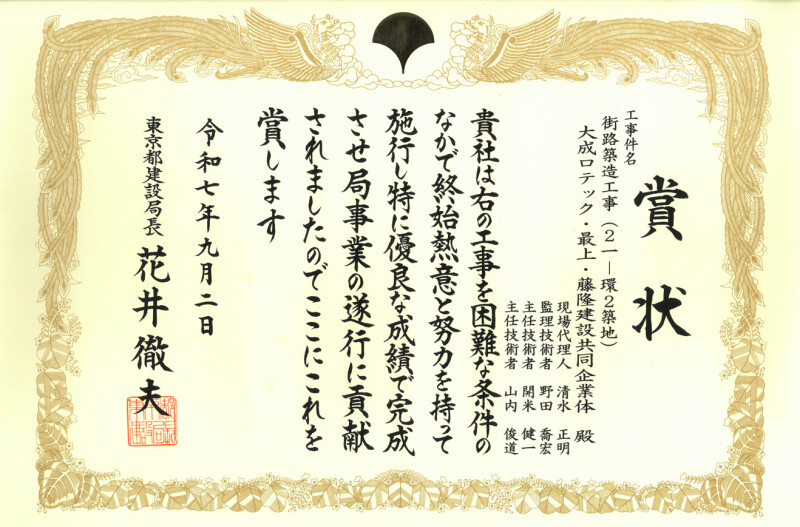 賞状
工事件名
街路築造工事（２１－環２築地）
大成ロテック・最上・藤隆建設共同企業体 殿
現場代理人 清水 正明
監理技術者 野田 喬宏
主任技術者 開米 健一
主任技術者 山内 俊道
貴社は右の工事を困難な条件の
なかで終始熱意と努力を持って
施行し特に優良な成績で完成
させ局事業の遂行に貢献
されましたのでここにこれを
賞します
令和七年九月二日
東京都建設局長 花井徹夫